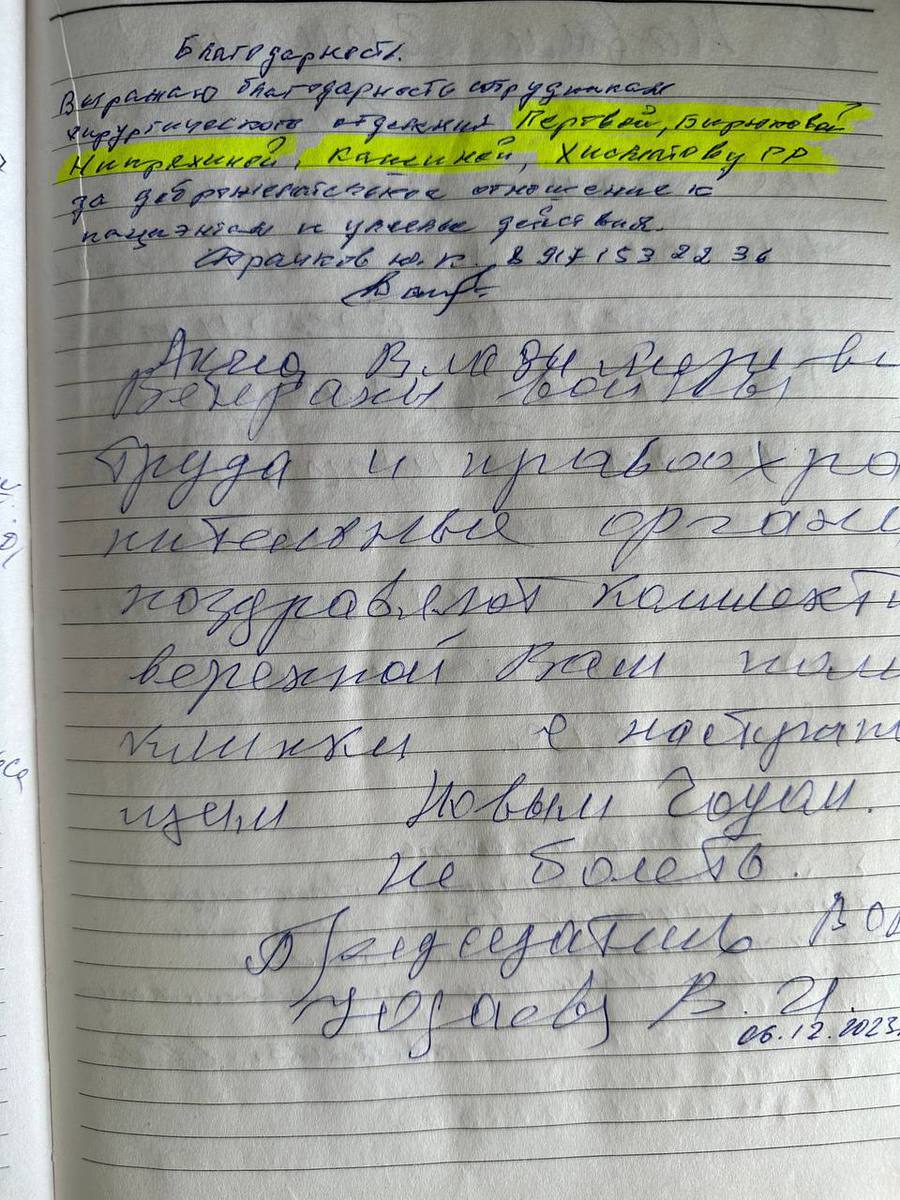 Благодарность.
Выражаю благодарность сотрудникам
хирургического отделения Пертвой, Бирюковой
Напряхиной, Кашиной, Хисматову РР
за доброжелательское отношение к
пациэнтам и умелые действия.
Ю.К. 8 917 153 22 36
Анна Владимировн
Ветераны войны
труда и правоохра
нительные орган
поздравляют коллекти
веренной Вам поли
клиники с наступаю
щим Новым Годом.
не болеть.
Председатель
В. И.
06.12.2023